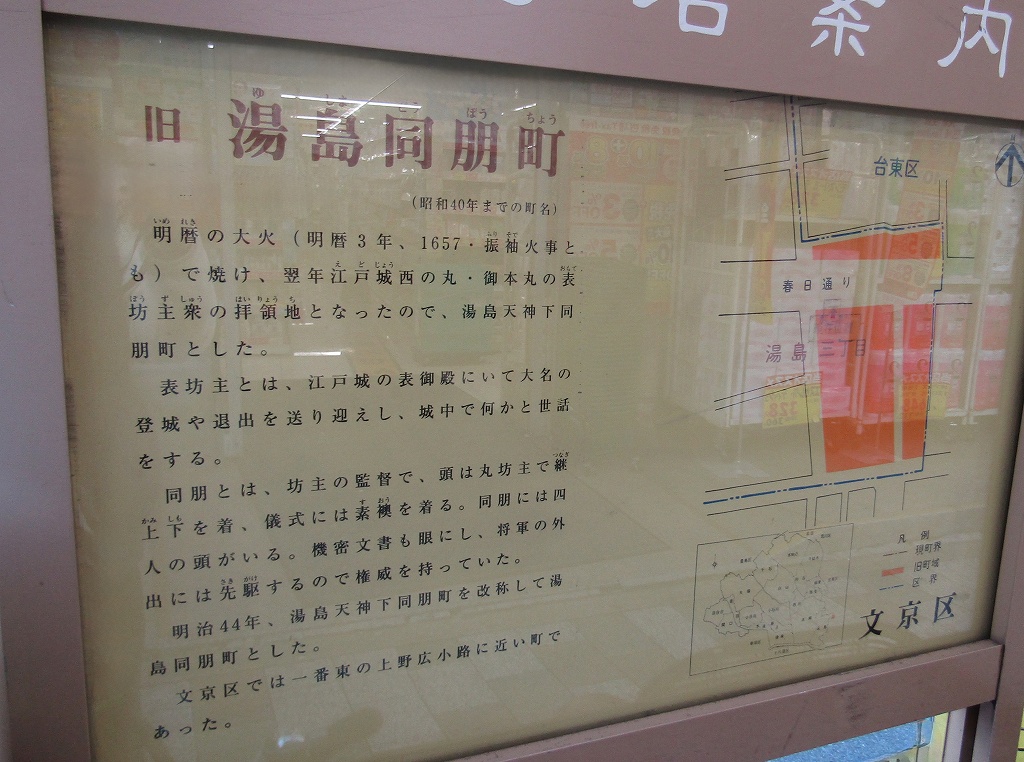 名案内
旧 湯島同朋町
(昭和40年までの町名)
明暦の大火(明暦3年、1657・振袖火事と
も)で焼け、翌年江戸城西の丸・御本丸の表
坊主衆の拝領地となったので、湯島天神下同
朋町とした。
表坊主とは、江戸城の表御殿にいて大名の
登城や退出を送り迎えし、城中で何かと世話
をする。
同朋とは、坊主の監督で、頭は丸坊主で継
上下を着、儀式には素襖を着る。同朋には四
人の頭がいる。機密文書も眼にし、将軍の外
出には先駆するので権威を持っていた。
明治44年、湯島天神下同朋町を改称して湯
島同朋町とした。
文京区では一番東の上野広小路に近い町で
あった。
台東区
春日通り
湯島三丁目
凡例
現町界
旧町域
区界
文京区